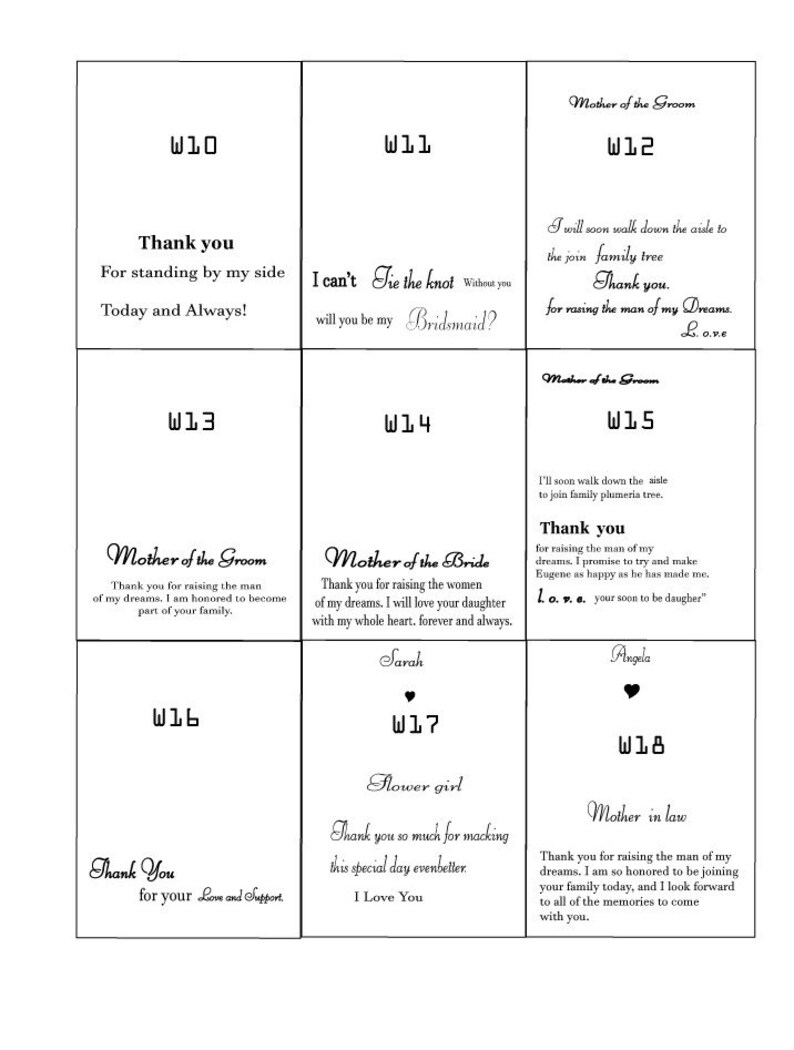 W10
Thank you
For standing by my side
Today and Always!
W11
I can't Tie the knot Without you
will you be my Bridsmaid?
Mother of the Groom
W12
I will soon walk down the aisle to
the join family tree
Thank you.
for rasing the man of my Dreams.
L. o.v.e
W13
Mother of the Groom
Thank you for raising the man
of my dreams. I am honored to become
part of your family.
W14
Mother of the Bride
Thank you for raising the women
of my dreams. I will love your daughter
with my whole heart. forever and always.
Mother of the Groom
W15
I'll soon walk down the aisle
to join family plumeria tree.
Thank you
for raising the man of my
dreams. I promise to try and make
Eugene as happy as he has made me.
l. o. v. e. your soon to be daugher"
W16
Thank You
for your Love and Support.
Sarah
W17
Flower girl
Thank you so much for macking
this special day evenbetter.
I Love You
Angela
W18
Mother in law
Thank you for raising the man of my
dreams. I am so honored to be joining
your family today, and I look forward
to all of the memories to come
with you.